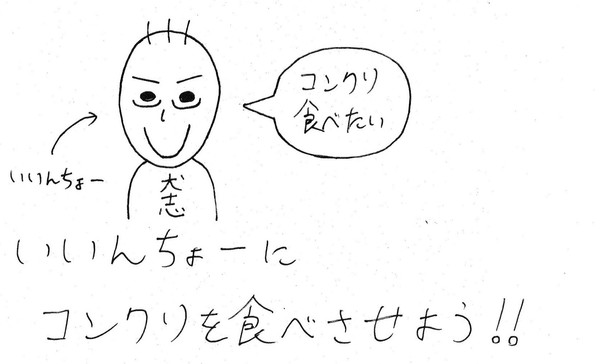 コンクリ
食べたい
いいんちょー
犬
志
いいんちょーに
コンクリを食べさせよう!!